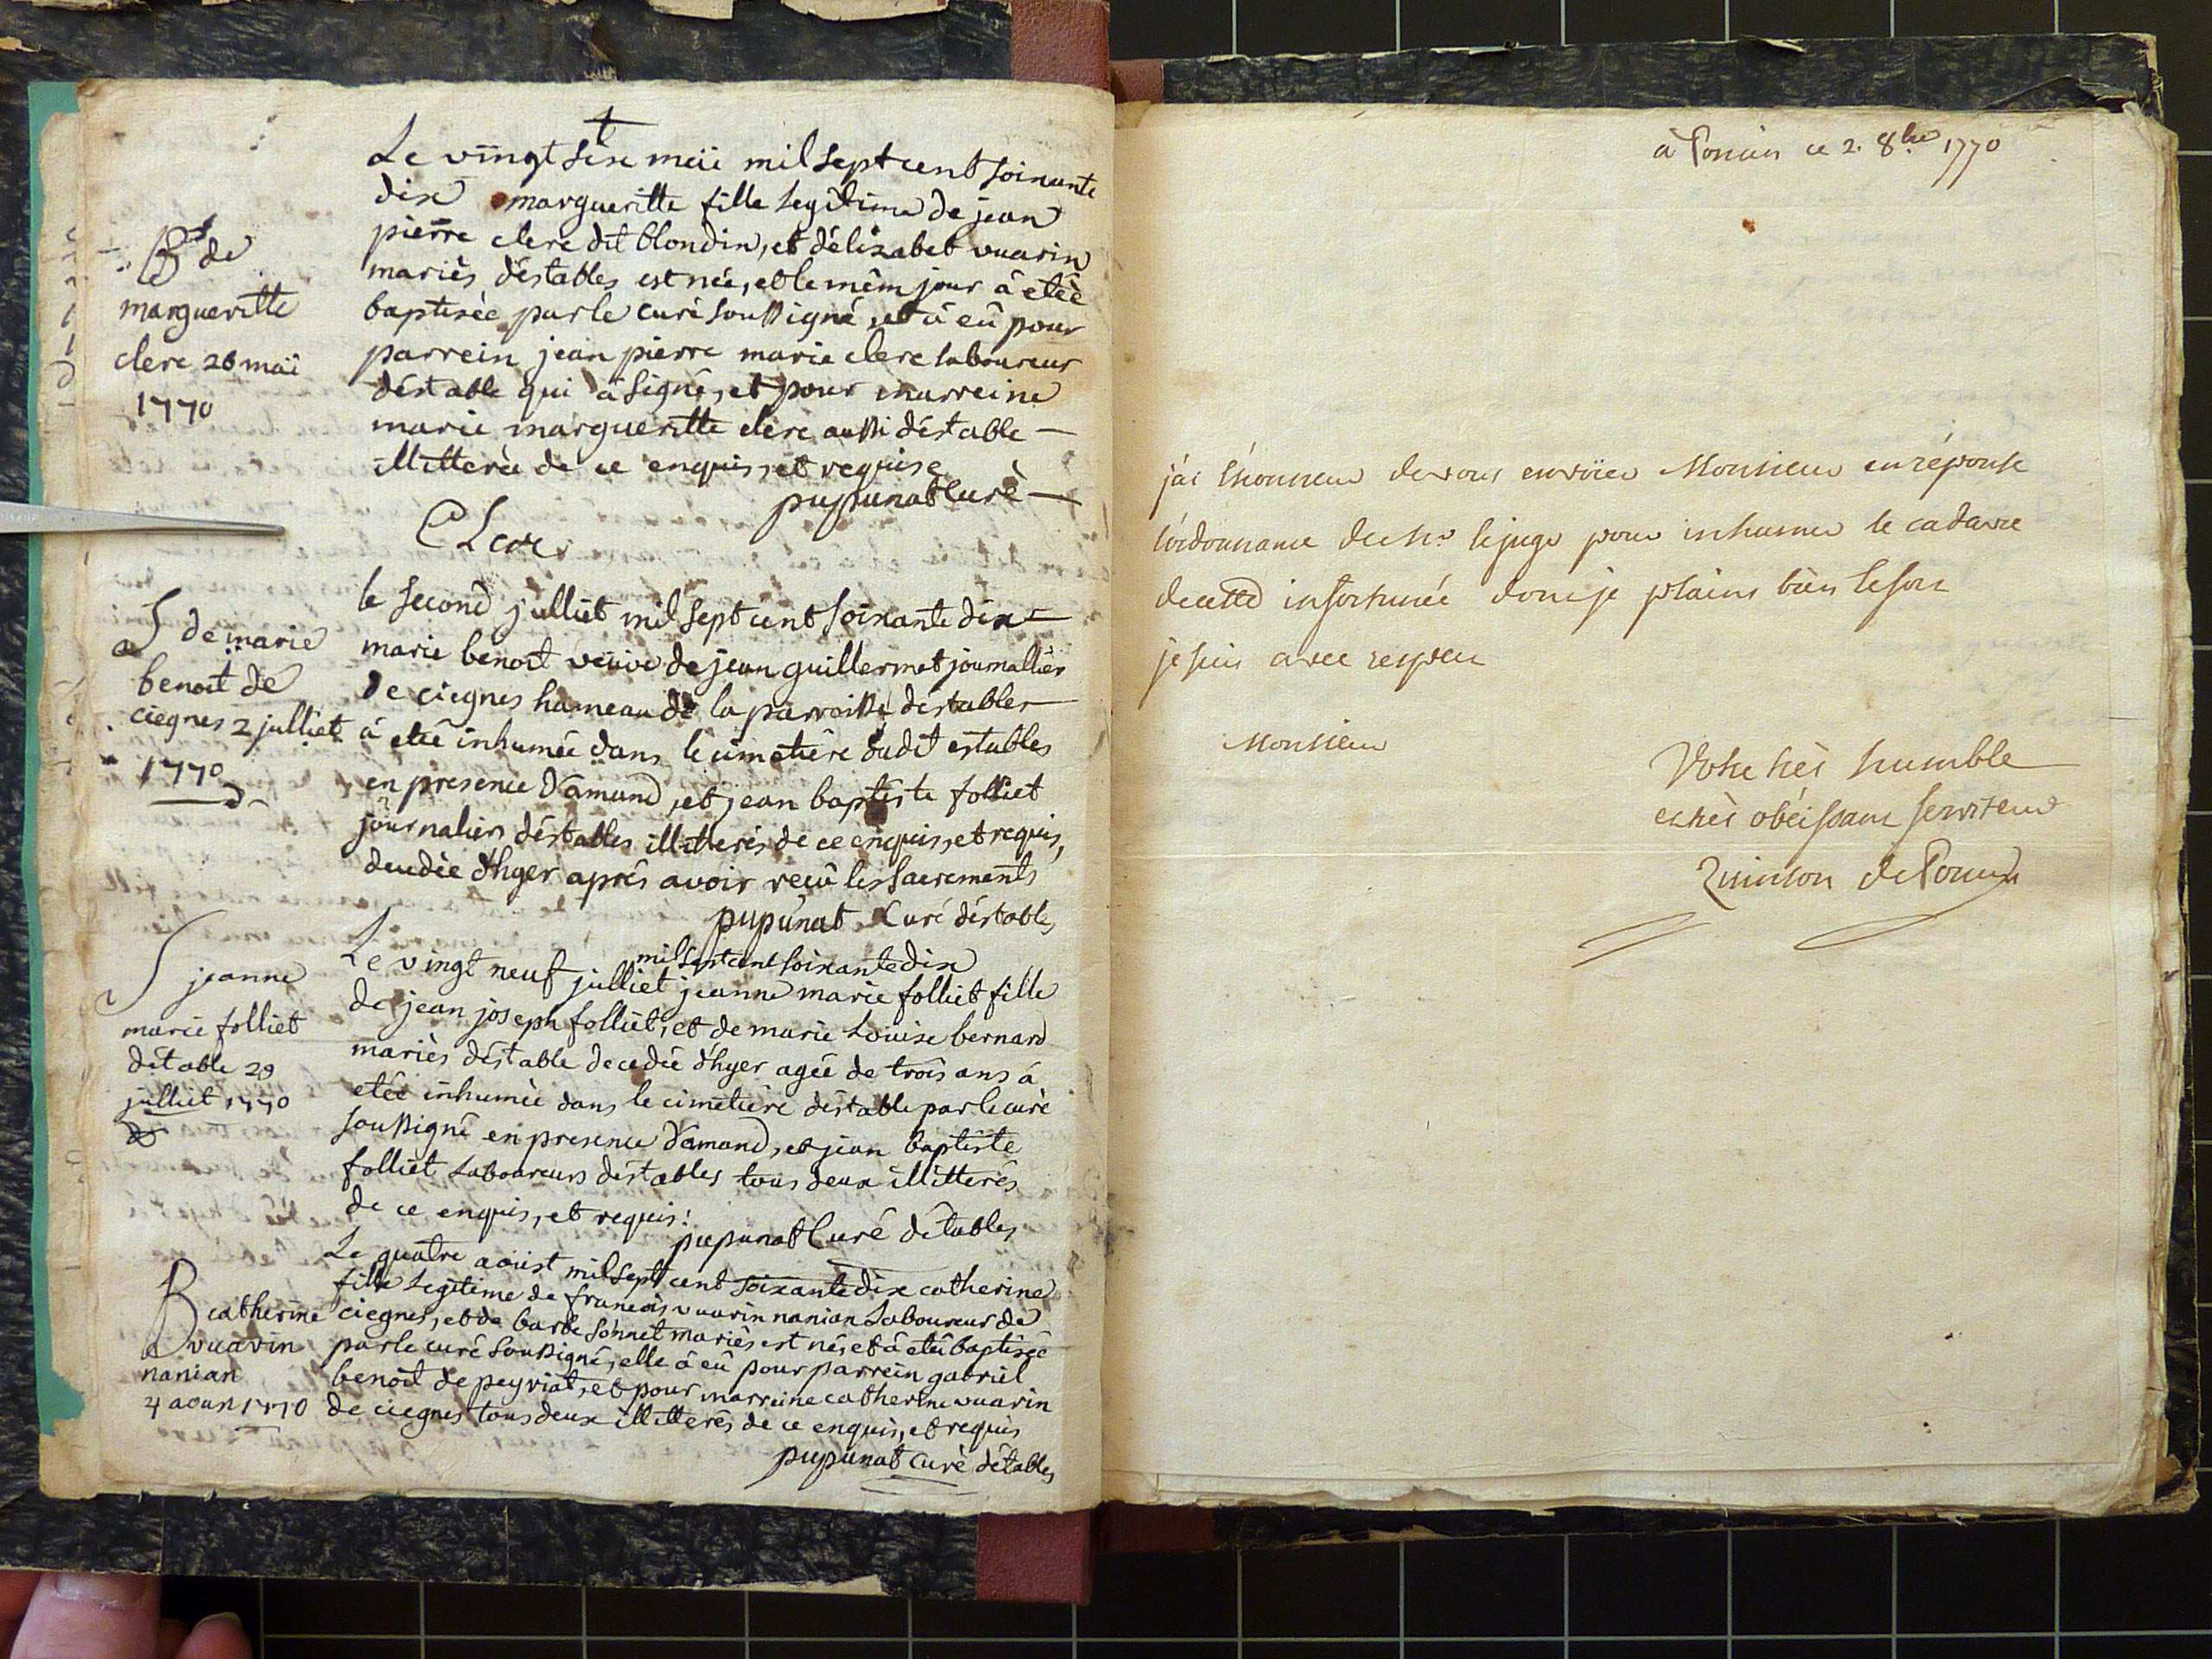 Le vingt sixe maii mil sept cent soixante
dixe margueritte fille legitime de jean
pierre clerc dit blondin, et délizabet vuarin
mariès déstables est née, et le mêm jour â etèe
baptisèe par le curé soussigné, et â eû pour
parrein jean pierre marie clerc laboureur
déstable qui â signé, et pour marreine
marie margueritte clerc aussi déstable —
illitterèe de ce enquis, et requise
pupunat curè —
CLerc
B de
margueritte
clerc 26 maii
1770
le second julliet mil sept cent soixante dix —
marie benoit veuve de jean guillermet journallier
de ciegnes hameau de la parroisse déstables
â etèe inhumée dans le cimetière dudit estables
en presence d'amand, et jean baptiste folliet
journaliers déstables illitterés de ce enquis, et requis,
decedèe d'hyer après avoir reçû les sacrements
pupunat Curé déstables
S de marie
benoit de
ciegnes 2 julliet
1770
mil sept cent soixante dix
Le vingt neuf julliet jeanne marie folliet fille
de jean joseph folliet, et de marie Louise bernard
mariès déstable decedèe d'hyer agèe de trois ans â
etèe inhumèe dans le cimetière déstable par le curé
soussigné en presence d'amand, et jean baptiste
folliet Laboureurs déstables tous deux illitterés
de ce enquis, et requis.
pupunat Curé détables
S jeanne
marie folliet
détable 29
julliet 1770
Le quatre aoust mil sept cent soixante dixe catherine
fille Legitime de francois vuarin nanian Laboureur de
ciegnes, et de barbe sonnet mariés est né, et â etèe baptisèe
par le curé soussigné, elle â eû pour parrein gabriel
benoit de peyriat, et pour marreine catherine vuarin
de ciegnes tous deux illitterés de ce enquis, et requis
pupunat Curè détables
B catherine
vuarin
nanian
4 aoust 1770
à Poncin ce 2. 8bre 1770
j'ai l'honneur de vous envoïer Monsieur en réponse
l'ordonnance de Mr le juge pour inhumer le cadavre
de cette infortunée dont je plains bien le sort
je suis avec respect
Monsieur
Votre très humble
et très obéissant serviteur
Quinson de Poncin